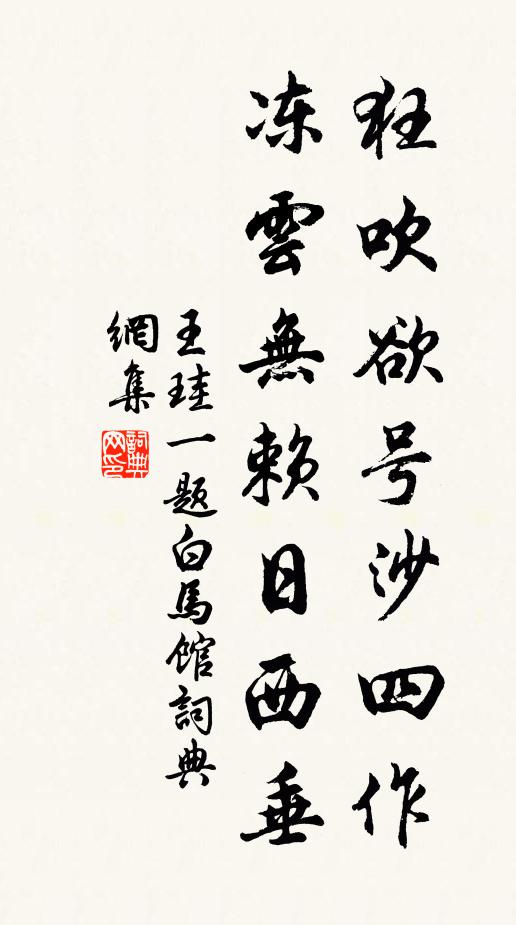 狂吹欲号沙四作
冻雲無賴日西垂
王珪一题白馬館詞典
網集
詞典
网印